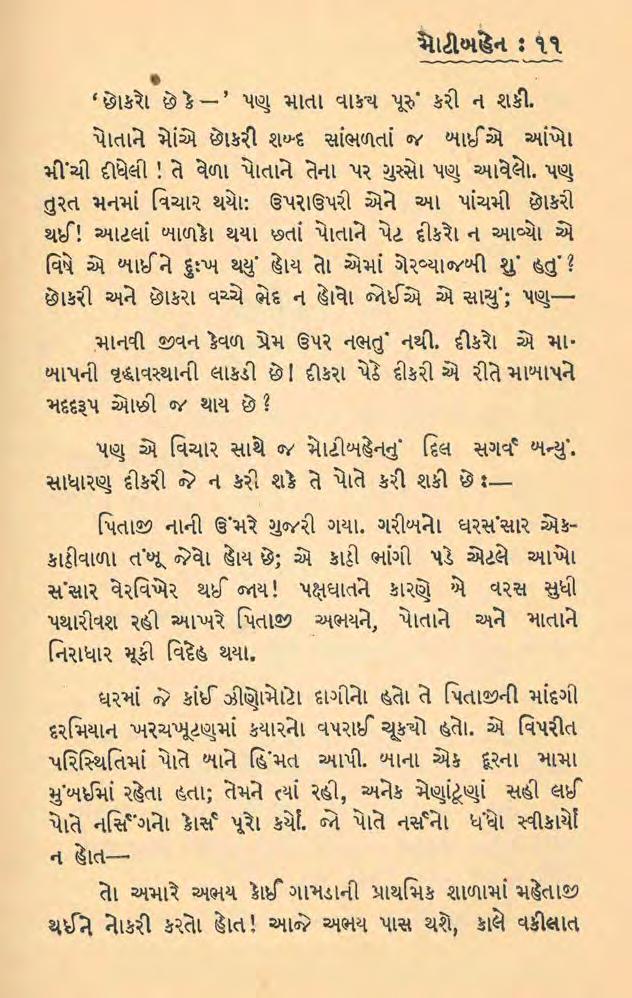 મોટીબહેન : ૧૧
‘છોકરો છે કે—’ પણ માતા વાક્ય પૂરું કરી ન શકી.
પોતાને મોંએ છોકરી શબ્દ સાંભળતાં જ બાઈએ આંખો
મીંચી દીધેલી ! તે વેળા પોતાને તેના પર ગુસ્સો પણ આવેલો. પણ
તુરત મનમાં વિચાર થયો: ઉપરાઉપરી એને આ પાંચમી છોકરી
થઈ! આટલાં બાળકો થયા છતાં પોતાને પેટ દીકરો ન આવ્યો એ
વિષે એ બાઈને દુઃખ થયું હોય તો એમાં ગેરવ્યાજબી શું હતું ?
છોકરી અને છોકરા વચ્ચે ભેદ ન હોવો જોઈએ એ સાચું; પણ—
માનવી જીવન કેવળ પ્રેમ ઉપર નભતું નથી. દીકરો એ મા-
બાપની વૃદ્ધાવસ્થાની લાકડી છે! દીકરા પેઠે દીકરી એ રીતે માબાપને
મદદરૂપ ઓછી જ થાય છે ?
પણ એ વિચાર સાથે જ મોટીબહેનનું દિલ સગર્વ બન્યું.
સાધારણ દીકરી જે ન કરી શકે તે પોતે કરી શકી છે :—
પિતાજી નાની ઉંમરે ગુજરી ગયા. ગરીબનો ઘરસંસાર એક-
કાઠીવાળા તંબૂ જેવો હોય છે; એ કાઠી ભાંગી પડે એટલે આખો
સંસાર વેરવિખેર થઈ જાય! પક્ષઘાતને કારણે બે વરસ સુધી
પથારીવશ રહી આખરે પિતાજી અભયને, પોતાને અને માતાને
નિરાધાર મૂકી વિદેહ થયા.
ઘરમાં જે કાંઈ ઝીણોમોટો દાગીનો હતો તે પિતાજીની માંદગી
દરમિયાન ખરચખૂટણમાં કયારનો વપરાઈ ચૂક્યો હતો. એ વિપરીત
પરિસ્થિતિમાં પોતે બાને હિંમત આપી. બાના એક દૂરના મામા
મુંબઈમાં રહેતા હતા; તેમને ત્યાં રહી, અનેક મેણાંટૂણાં સહી લઈ
પોતે નર્સિંગનો કોર્સ પૂરો કર્યો. જો પોતે નર્સનો ધંધો સ્વીકાર્યો
ન હોત—
તો અમારે અભય કોઈ ગામડાની પ્રાથમિક શાળામાં મહેતાજી
થઈને નોકરી કરતો હોત! આજે અભય પાસ થશે, કાલે વકીલાત